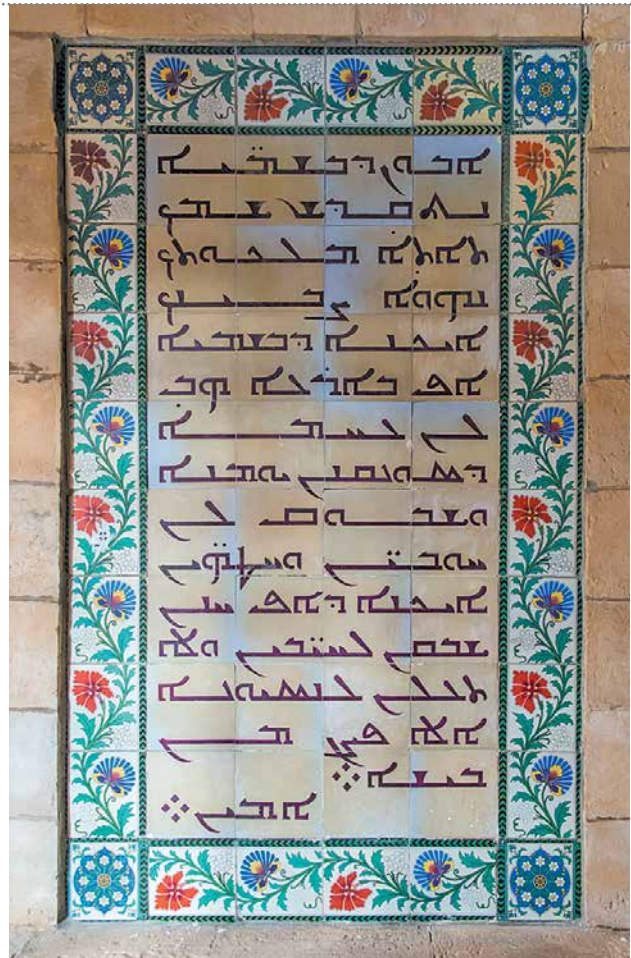 ܐܒܘܢ ܕܒܫܡ̈ܝܐ
ܢܬܩܕܫ ܫܡܟ
ܬܐܬܐ ܡܠܟܘܬܟ
ܢܗܘܐ ܨܒܝܢܟ
ܐܝܟܢܐ ܕܒܫܡܝܐ
ܐܦ ܒܐܪܥܐ ܗܒ
ܠܢ ܠܚܡܐ
ܕܣܘܢܩܢܢ ܝܘܡܢܐ
ܘܫܒܘܩ ܠܢ
ܚܘܒܝ̈ܢ ܘܚܛܗ̈ܝܢ
ܐܝܟܢܐ ܕܐܦ ܚܢܢ
ܫܒܩܢ ܠܚܝ̈ܒܝܢ ܘܠܐ
ܬܥܠܢ ܠܢܣܝܘܢܐ
ܐܠܐ ܦܨܢ ܡܢ
ܒܝܫܐ܀
ܐܡܝܢ܀